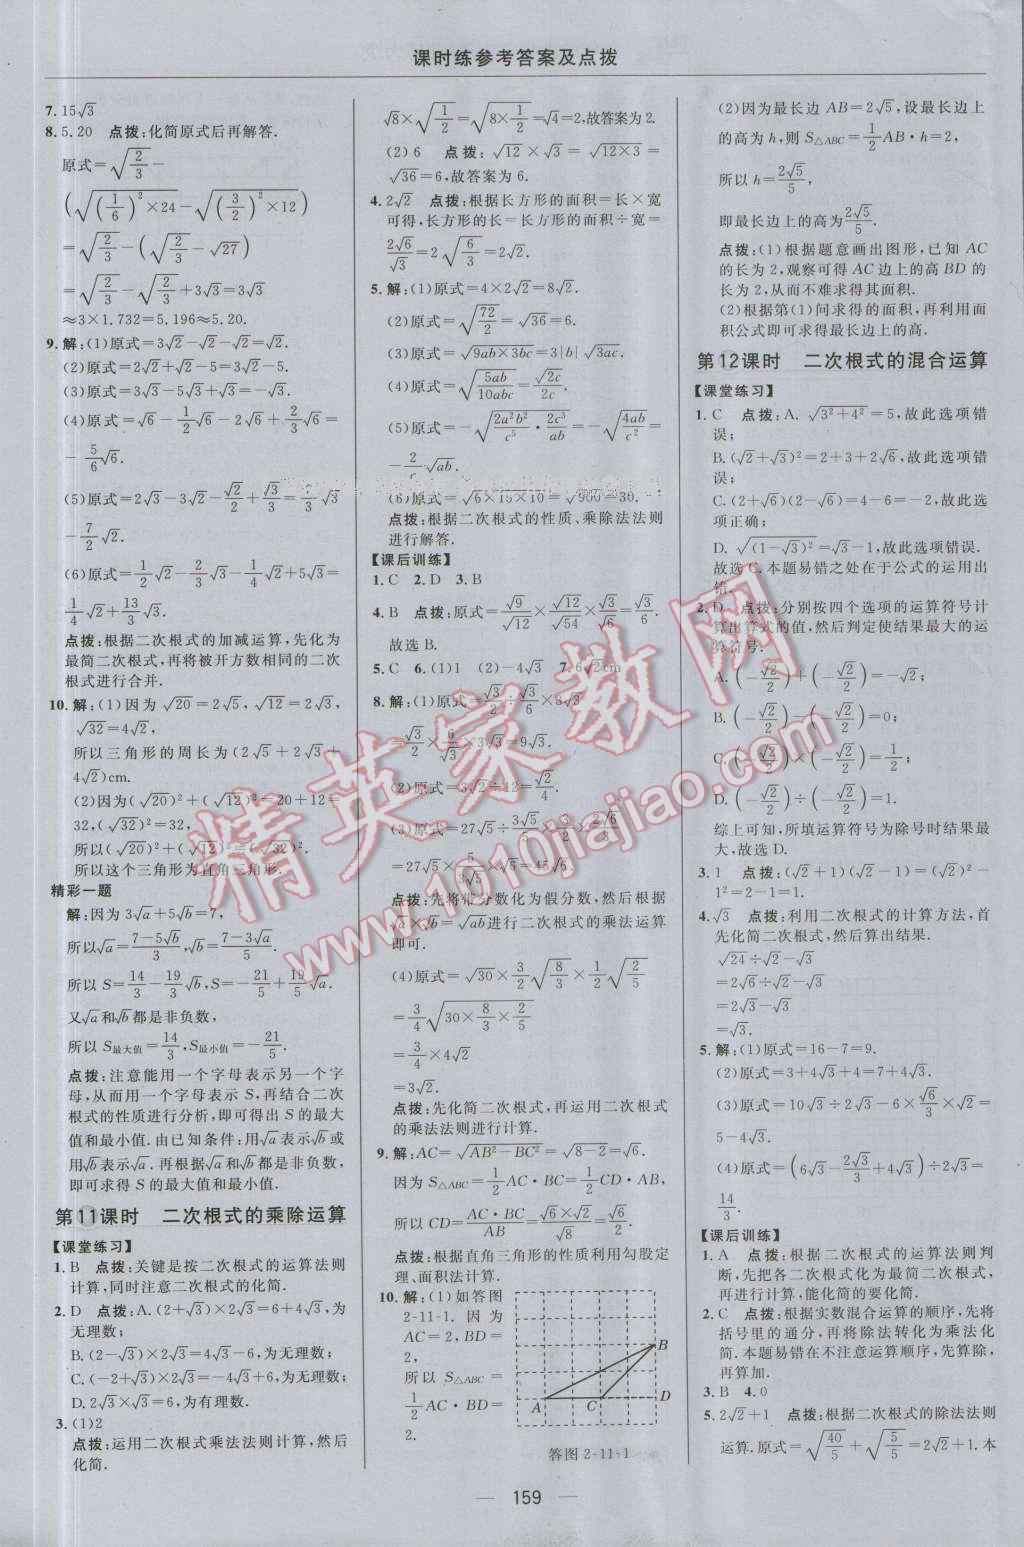 课时练参考答案及点拨
7. 15√3
8. 5.20　点拨:化简原式后再解答.
原式=√(2/3)-
(√((1/6)²×24)-√((3/2)²×12))
=√(2/3)-(√(2/3)-√27)
=√(2/3)-√(2/3)+3√3=3√3
≈3×1.732=5.196≈5.20.
9. 解:(1)原式=3√2-√2-√2=√2.
(2)原式=2√2+√2-5=3√2-5.
(3)原式=3√3-5√3+√3=-√3.
(4)原式=√6-1/2√6-2√6+2/3√6=
-5/6√6.
(5)原式=2√3-3√2-√2/2+√3/3=7/3√3
-7/2√2.
(6)原式=1/2√2-2/3√3-1/4√2+5√3=
1/4√2+13/3√3.
点拨:根据二次根式的加减运算,先化为
最简二次根式,再将被开方数相同的二次
根式进行合并.
10. 解:(1)因为√20=2√5,√12=2√3,
√32=4√2,
所以三角形的周长为(2√5+2√3+
4√2)cm.
(2)因为(√20)²+(√12)²=20+12=
32,(√32)²=32,
所以(√20)²+(√12)²=(√32)².
所以这个三角形为直角三角形.
精彩一题
解:因为3√a+5√b=7,
所以√a=(7-5√b)/3,√b=(7-3√a)/5.
所以S=14/3-19/3√b,S=-21/5+19/5√a.
又√a和√b都是非负数,
所以S最大值=14/3,S最小值=-21/5.
点拨:注意能用一个字母表示另一个字
母,从而用一个字母表示S,再结合二次
根式的性质进行分析,即可得出S的最大
值和最小值.由已知条件:用√a表示√b或
用√b表示√a.再根据√a和√b都是非负数,
即可求得S的最大值和最小值.
第11课时　二次根式的乘除运算
【课堂练习】
1. B　点拨:关键是按二次根式的运算法则
计算,同时注意二次根式的化简.
2. D　点拨:A.(2+√3)×2√3=6+4√3,为
无理数;
B.(2-√3)×2√3=4√3-6,为无理数;
C.(-2+√3)×2√3=6-4√3,为无理数;
D.2√3×√3=6,为有理数.
3. (1)2
点拨:运用二次根式乘法法则计算,然后
化简.
√8×√(1/2)=√(8×1/2)=√4=2,故答案为2.
(2)6　点拨:√12×√3=√(12×3)=
√36=6,故答案为6.
4. 2√2　点拨:根据长方形的面积=长×宽
可得,长方形的长=长方形的面积÷宽=
2√6/√3=2√(6/3)=2√2.
5. 解:(1)原式=4×2√2=8√2.
(2)原式=√(72/2)=√36=6.
(3)原式=√(9ab×3bc)=3|b|√3ac.
(4)原式=√(5ab/10abc)=√2c/2c.
(5)原式=-√(2a²b²/c⁵·2c³/ab)=-√(4ab/c²)=
-2/c√ab.
(6)原式=√(6×15×10)=√900=30.
点拨:根据二次根式的性质、乘除法法则
进行解答.
【课后训练】
1. C　2. D　3. B
4. B　点拨:原式=√9/√12×√12/√54×√3/√6=√3/6.
故选B.
5. C　6. (1)1　(2)-4√3　7. 6√2cm
8. 解:(1)原式=√3/2÷√3/6×3√3
=√3/2×6/√3×3√3=9√3.
(2)原式=3√2÷12=√2/4.
(3)原式=27√5÷3√5/5×5√5/3
=27√5×5/3√5×5√5/3=45√5.
点拨:先将带分数化为假分数,然后根据
√a×√b=√ab进行二次根式的乘法运算
即可.
(4)原式=√30×3/2√(8/3)×1/2√(2/5)
=3/4√(30×8/3×2/5)
=3/4×4√2
=3√2.
点拨:先化简二次根式,再运用二次根式
的乘法法则进行计算.
9. 解:AC=√(AB²-BC²)=√(8-2)=√6.
因为S△ABC=1/2AC·BC=1/2CD·AB,
所以CD=AC·BC/AB=√6×√2/√8=√6/2.
点拨:根据直角三角形的性质利用勾股定
理、面积法计算.
10. 解:(1)如答图
2-11-1.因为
AC=2,BD=
2,
所以S△ABC=
1/2AC·BD=
2.
A
C
B
D
答图2-11-1
(2)因为最长边AB=2√5,设最长边上
的高为h,则S△ABC=1/2AB·h=2,
所以h=2√5/5,
即最长边上的高为2√5/5.
点拨:(1)根据题意画出图形,已知AC
的长为2,观察可得AC边上的高BD的
长为2,从而不难求得其面积.
(2)根据第(1)问求得的面积,再利用面
积公式即可求得最长边上的高.
第12课时　二次根式的混合运算
【课堂练习】
1. C　点拨:A.√(3²+4²)=5,故此选项错
误;
B.(√2+√3)²=2+3+2√6,故此选项错
误;
C.(2+√6)(2-√6)=4-6=-2,故此选
项正确;
D.√((1-√3)²)=√3-1,故此选项错误.
故选C.本题易错之处在于公式的运用出
错.
2. D　点拨:分别按四个选项的运算符号计
算出算式的值,然后判定使结果最大的运
算符号.
A.(-√2/2)+(-√2/2)=-√2;
B.(-√2/2)-(-√2/2)=0;
C.(-√2/2)×(-√2/2)=1/2;
D.(-√2/2)÷(-√2/2)=1.
综上可知,所填运算符号为除号时结果最
大,故选D.
3. 1　点拨:(√2+1)(√2-1)=(√2)²-
1²=2-1=1.
4. √3　点拨:利用二次根式的计算方法,首
先化简二次根式,然后算出结果.
√24÷√2-√3
=2√6÷√2-√3
=2√3-√3
=√3.
5. 解:(1)原式=16-7=9.
(2)原式=3+4√3+4=7+4√3.
(3)原式=10√3÷2√3-6×√6/3×√2=
5-4√3.
(4)原式=(6√3-2√3/3+4√3)÷2√3=
14/3.
【课后训练】
1. A　点拨:根据二次根式的运算法则判
断,先把各二次根式化为最简二次根式,
再进行计算,能化简的要化简.
2. C　点拨:根据实数混合运算的顺序,先将
括号里的通分,再将除法转化为乘法化
简.本题易错在不注意运算顺序,先算除,
再算加.
3. B　4. 0
5. 2√2+1　点拨:根据二次根式的除法法则
运算.原式=√(40/5)+√(5/5)=2√2+1.本
— 159 —
精英家教网
www.1010jiajiao.com